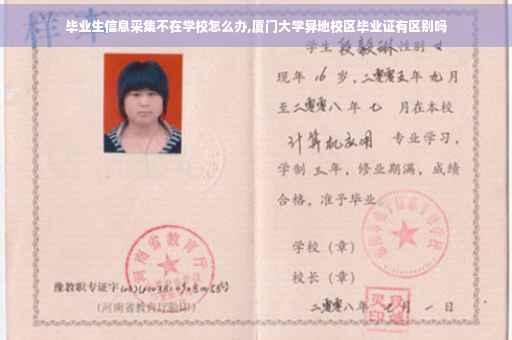 毕业生信息采集不在学校怎么办,厦门大学异地校区毕业证有区别吗
样本
学生 段毅琳 性别 女
现年 16 岁，二零零五年 九月
至二零零八年 七 月在本校
计算机应用 专业学习，
学制 三 年，修业期满，成绩
合格，准予毕业
学校（章）
校长（章）
河南省教育厅
豫教职专证字
（河南省教育厅验印）
二零零八年 七 月 一 日